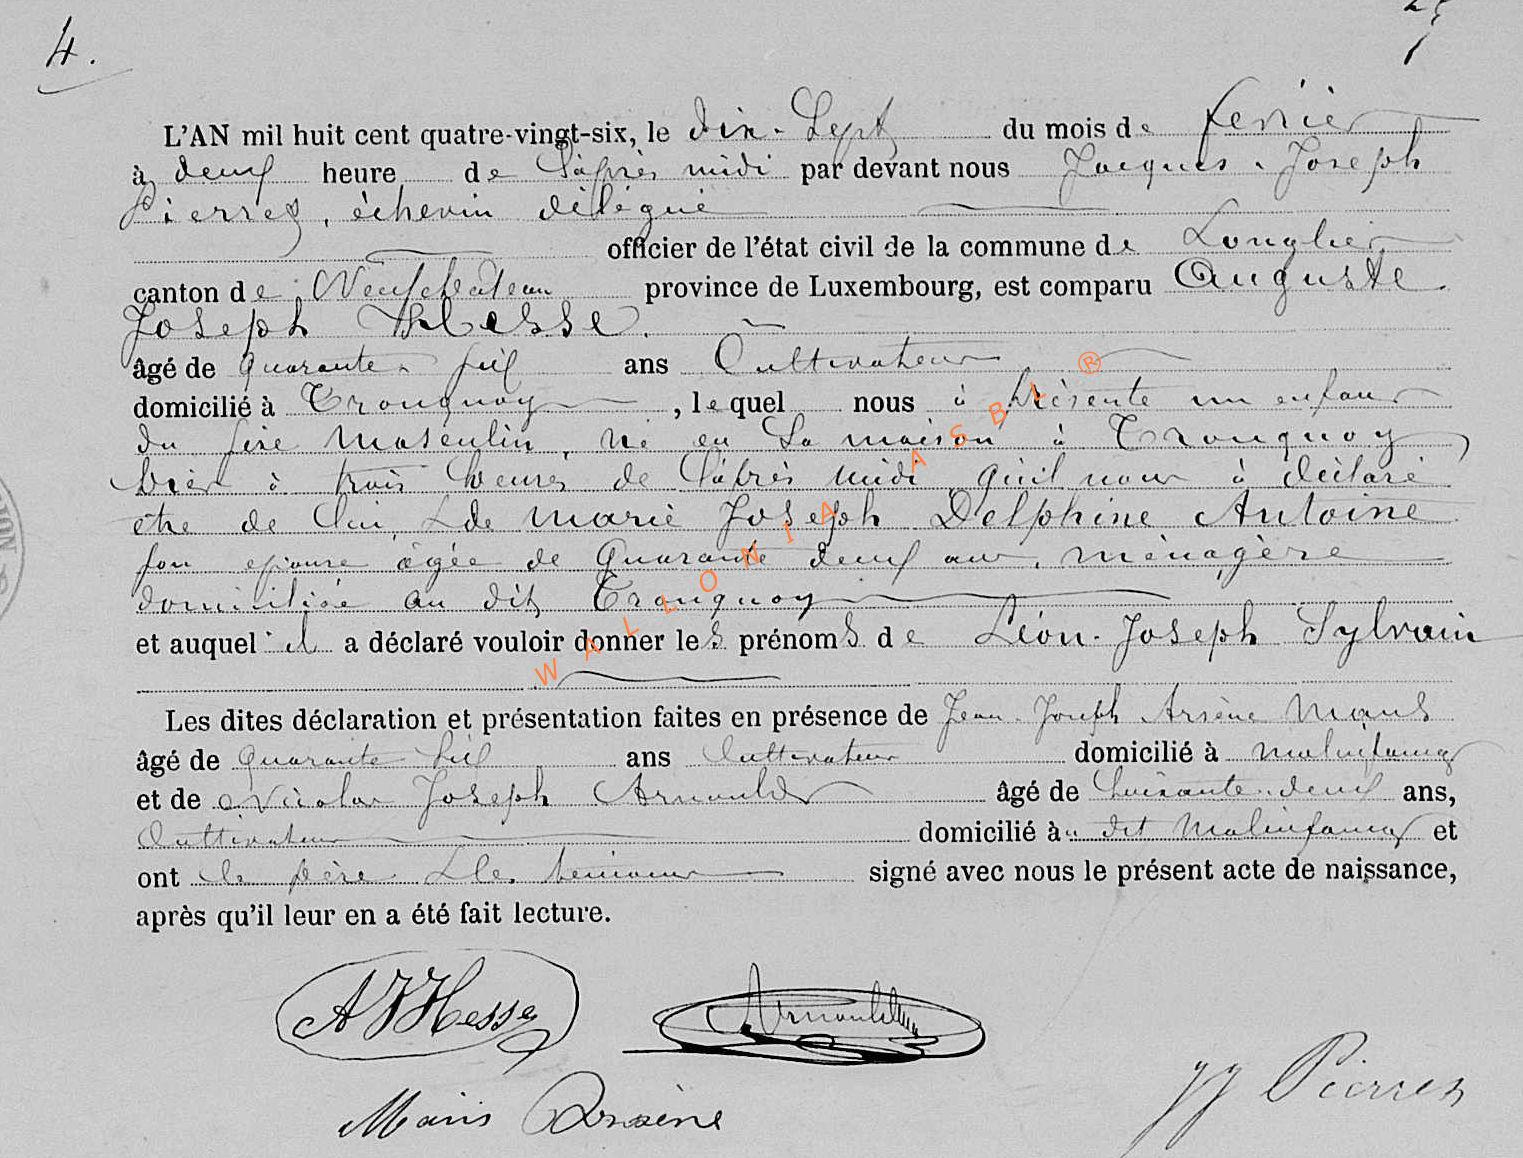 4.
L'AN mil huit cent quatre-vingt-six, le dix-Sept du mois de fevrier
à deux heure de L'après midi par devant nous Jacques-Joseph
Pierres, échevin délégué
officier de l'état civil de la commune de Longlier
canton de Neufchâteau province de Luxembourg, est comparu Auguste
Joseph Hesse.
âgé de quarante-six ans Cultivateur
domicilié à Tronquoy, lequel nous à présenté un enfant
du sexe masculin, né en sa maison à Tronquoy
hier à trois heures de l'après midi qu'il nous à déclaré
etre de lui & de Marie Joseph Delphine Antoine
son epouse âgée de quarante deux ans, ménagère
domiciliée au dit Tronquoy
et auquel il a déclaré vouloir donner les prénoms de Léon-Joseph Sylvain
Les dites déclaration et présentation faites en présence de Jean-Joseph Arsène Maris
âgé de quarante six ans Cultivateur domicilié à Molinfaing
et de Nicolas Joseph Arnould âgé de soixante-deux ans,
Cultivateur domicilié au dit Molinfaing et
ont le père & les temoins signé avec nous le présent acte de naissance,
après qu'il leur en a été fait lecture.
AJ Hesse Arnould
Maris Arsène JJ Pierres
WALLONIA ASBL ®